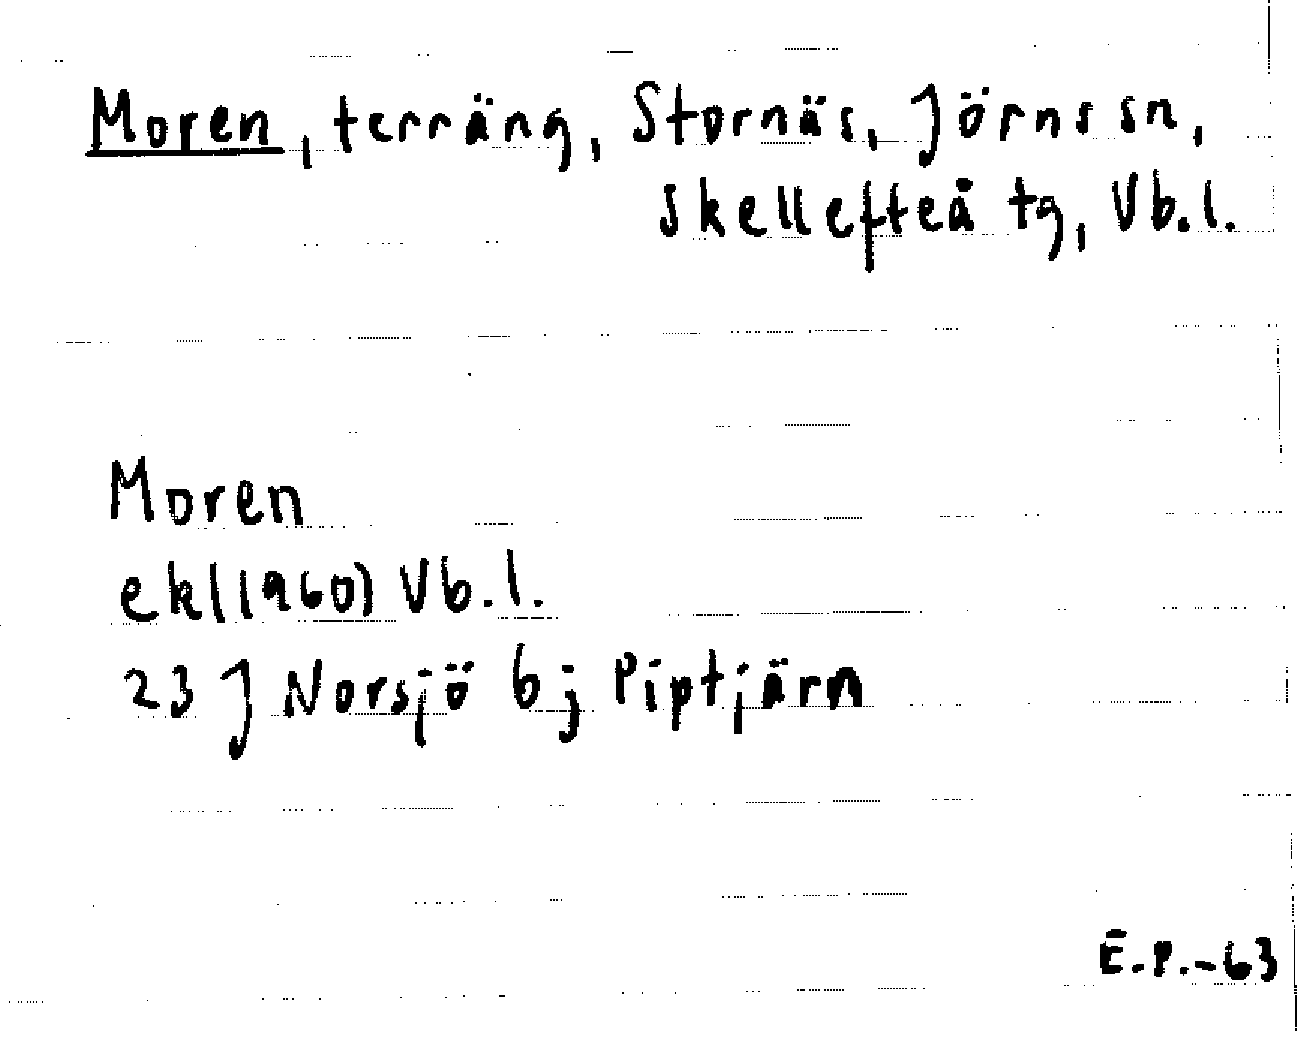 Moren, terräng, Stornäs, Jörns sn,
Skellefteå tg, Vb.l.
Moren
ek(1960) Vb.l.
23 J Norsjö bj Piptjärn
E.P.-63